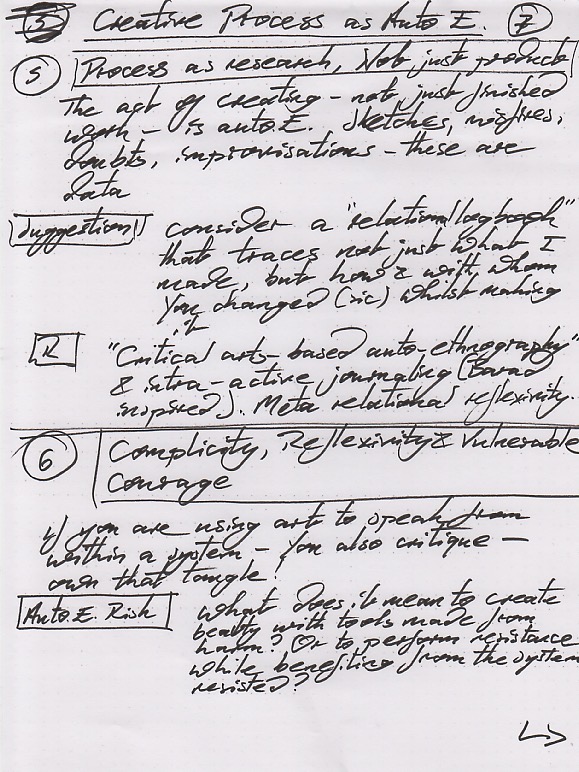 5 Creative Process as Auto E. 7
5 Process as research, Not just product
The act of creating - not just finished
work - is auto.E. Sketches, misfires,
doubts, improvisations - these are
data
Suggestion consider a "relational logbook"
that traces not just what I
made, but how & with whom
you changed (sic) whilst making
it
R "Critical arts-based auto-ethnography"
& intra-active journaling (Barad
inspired). Meta relational reflexivity.
6 Complicity, Reflexivity & Vulnerable
Courage
If you are using art to speak from
within a system - you also critique -
own that tangle!
Auto.E. Risk What does it mean to create
beauty with tools made from
harm? Or to perform resistance
while benefiting from the system
resisted?